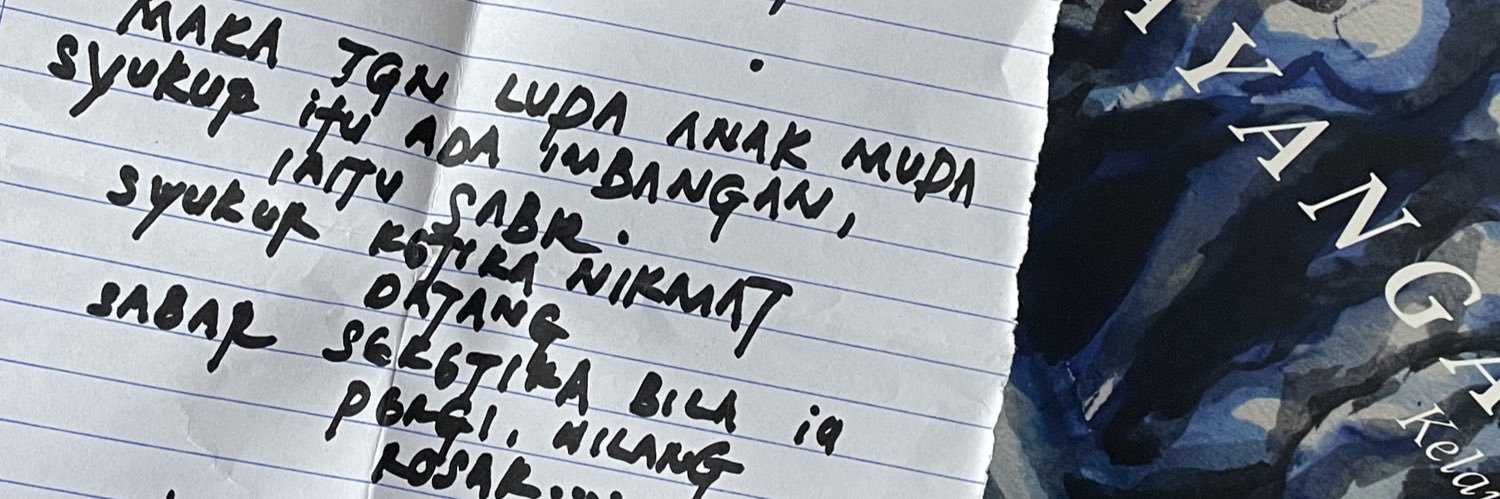 MAKA JGN LUPA ANAK MUDA
SYUKUR itu ADA IMBANGAN,
IAITU SABR.
SYUKUR KETIKA NIKMAT
DATANG
SABAR SEKETIKA BILA ia
PERGI, HILANG
ROSAK...
AYANGA
Kela